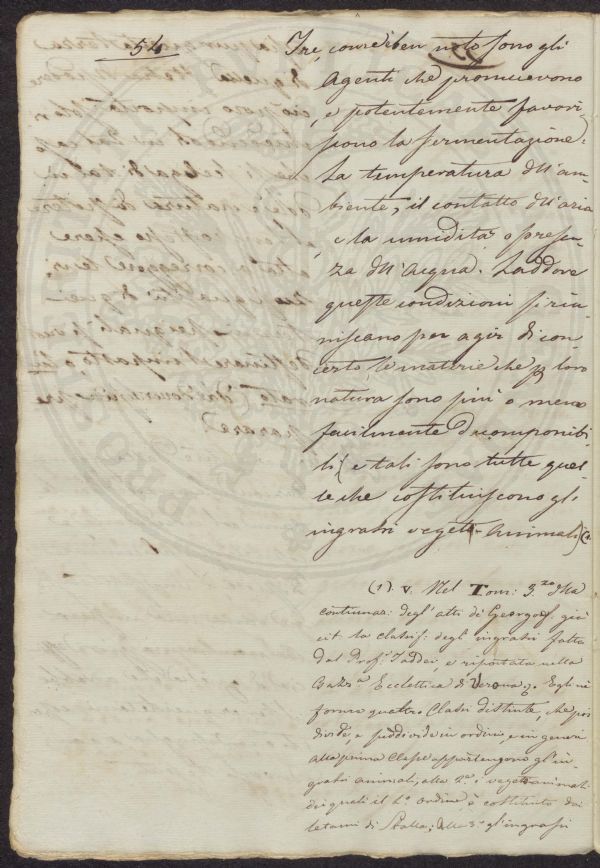 54
Tre, come è ben noto sono gli
Agenti che promuovono
e potentemente favori
scono la fermentazione:
la temperatura dell'am
biente, il contatto dell'aria
e la umidità o presen
za dell'acqua. Laddove
queste condizioni si riu
niscano per agir di con
certo le materie che p loro
natura sono più o meno
facilmente decomponibi
li (e tali sono tutte quel
le che costituiscono gl'
ingrassi vegeto-animali) (1
(1). V. Nel Tom: 3.zo della
continuaz: degl'atti de' Georgof. già
cit la classif. degl'ingrassi fatta
dal Prof. Taddei, e riportata nella
Gazz.a Ecclettica di Verona Egli ne
forma quattro Classi distinte, che poi
divide, e suddivide in ordini, e in generi
alla prima Classe appartengono gl'in
grassi animali, alla 2.a i vegeto animali
dei quali il 1.o ordine è costituito dai
letami di Stalla; alla 3.a gl'ingrassi